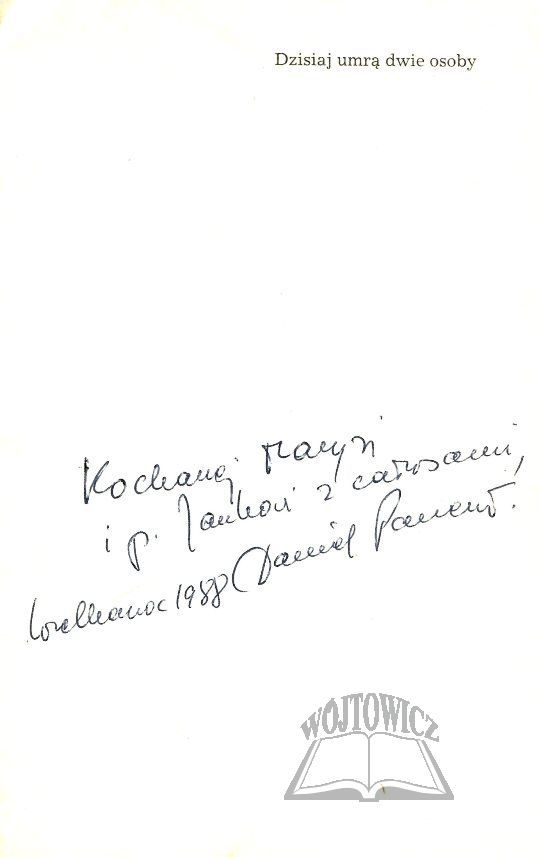 Dzisiaj umrą dwie osoby
Kochanej Marysi
i p. Jankowi z całusami,
Wielkanoc 1988 Daniel
WÓJTOWICZ